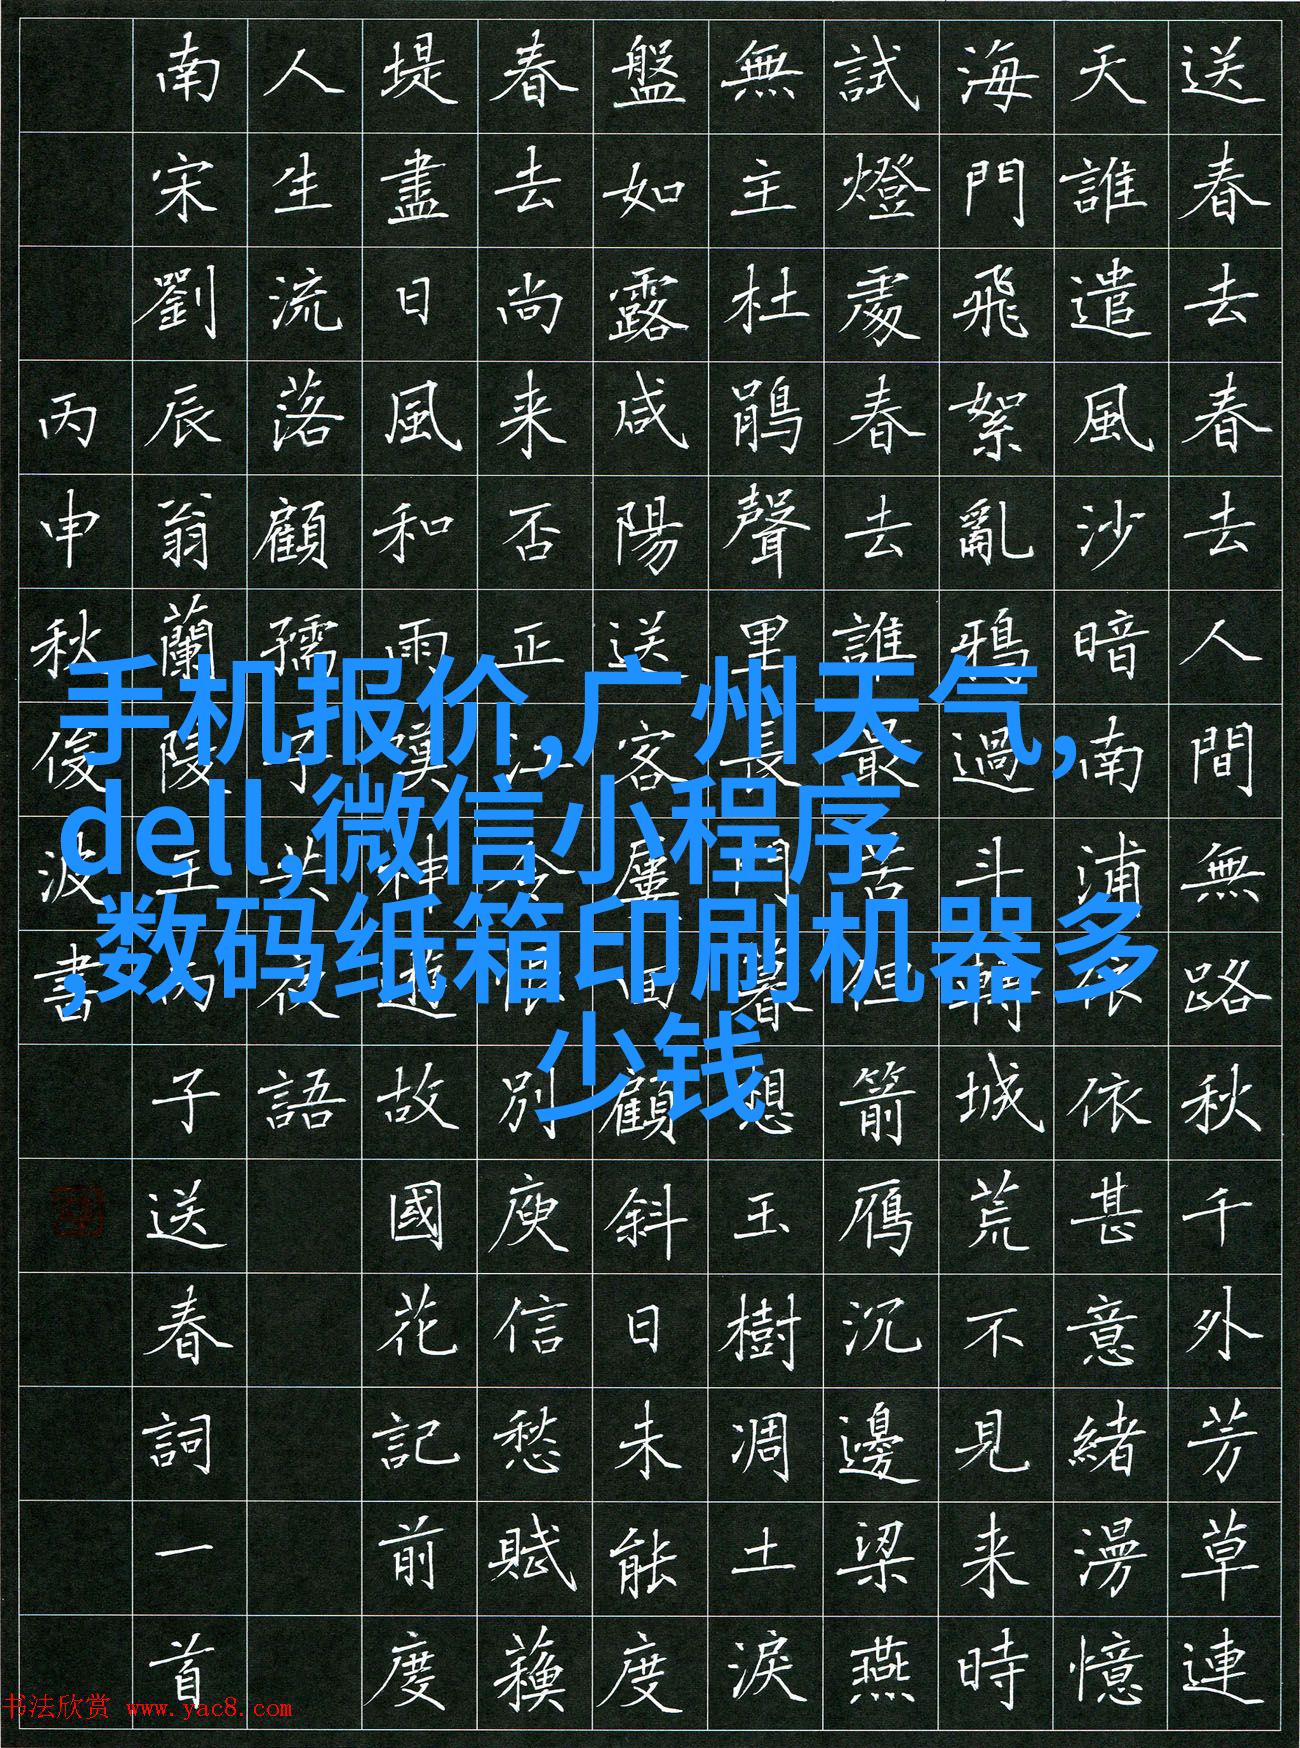 送春去春去人間無路秋千外芳草連
天誰遣風沙暗南浦依依甚意緒漫憶
海門飛絮亂鴉過斗轉城荒不見来時
試燈處春去誰最苦但箭雁沉邊梁燕
無主杜鵑聲里長門暮想玉樹凋土淚
盤如露咸陽送客屢回顧斜日未能度
春去尚来否正江令恨別庾信愁賦蘓
堤盡日風和雨嘆神遊故國花記前度
人生流落顧孺子共夜語
南宋劉辰翁蘭陵王丙子送春詞一首
丙申秋俊波書
手机报价,广州天气,
dell,微信小程序
,数码纸箱印刷机器多
少钱
书法欣赏 www.yac8.com